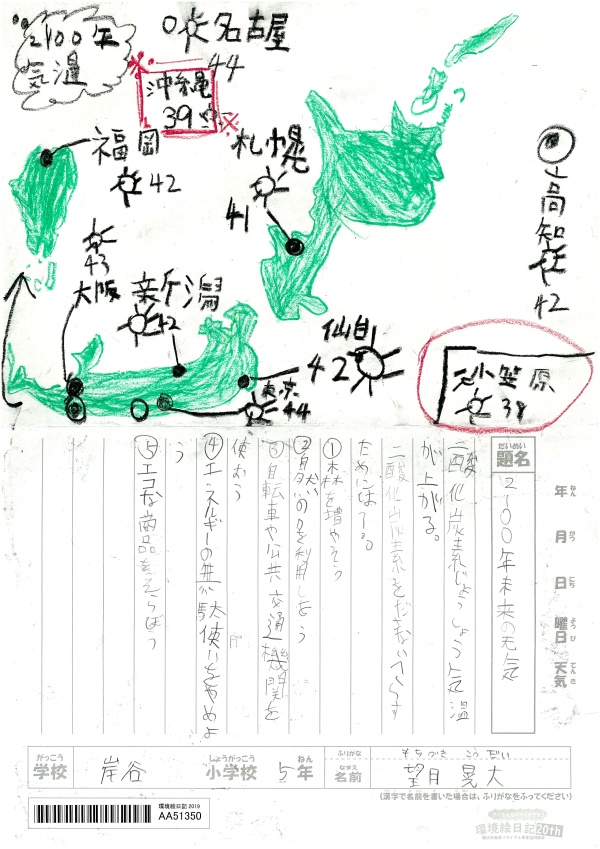 2100年
気温
名古屋
44
沖縄
39
福岡
42
札幌
41
高知
42
43
大阪
新潟
42
仙台
42
東京
44
小笠原
38
だいめい
題名
2100年未来の天気
ねん
年
がつ
月
にち
日
ようび
曜日
てんき
天気
二酸化炭素じょうしょう気温
が上がる。
二酸化炭素を
ためには
①森林を増やそう
②自然の
③自転車や公共交通機関を
使おう
④エネルギーの無駄使いをやめよ
う
⑤エコな商品をえらぼう
がっこう
学校
岸谷
しょうがっこう
小学校
5
ねん
年
ふりがな
もちづき こうだい
なまえ
名前
望月 晃大
(漢字で名前を書いた場合は、ふりがなをふってください)
環境絵日記2019
AA51350
環境絵日記20th